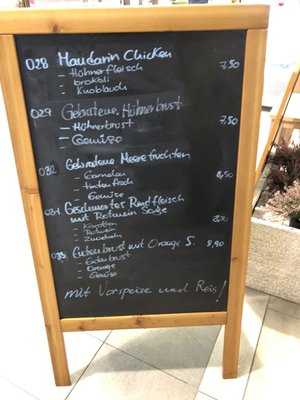 028 Mandarin Chicken 7,50
- Hühnerfleisch
- brokoli
- Knoblauch
029 Gebratene Hühnerbrust 7,50
- Hühnerbrust
- Gemüse
030 Gebratene Meeresfrüchten 8,50
- Garnelen
- Tintenfisch
- Gemüse
031 Geschmortes Rindfleisch
mit Rotwein Soße 8,50
- Karotten
- Rotwein
- Zwiebeln
033 Entenbrust mit Orange S. 8,90
- Entenbrust
- Orange
- Gemüse
mit Vorspeise und Reis!